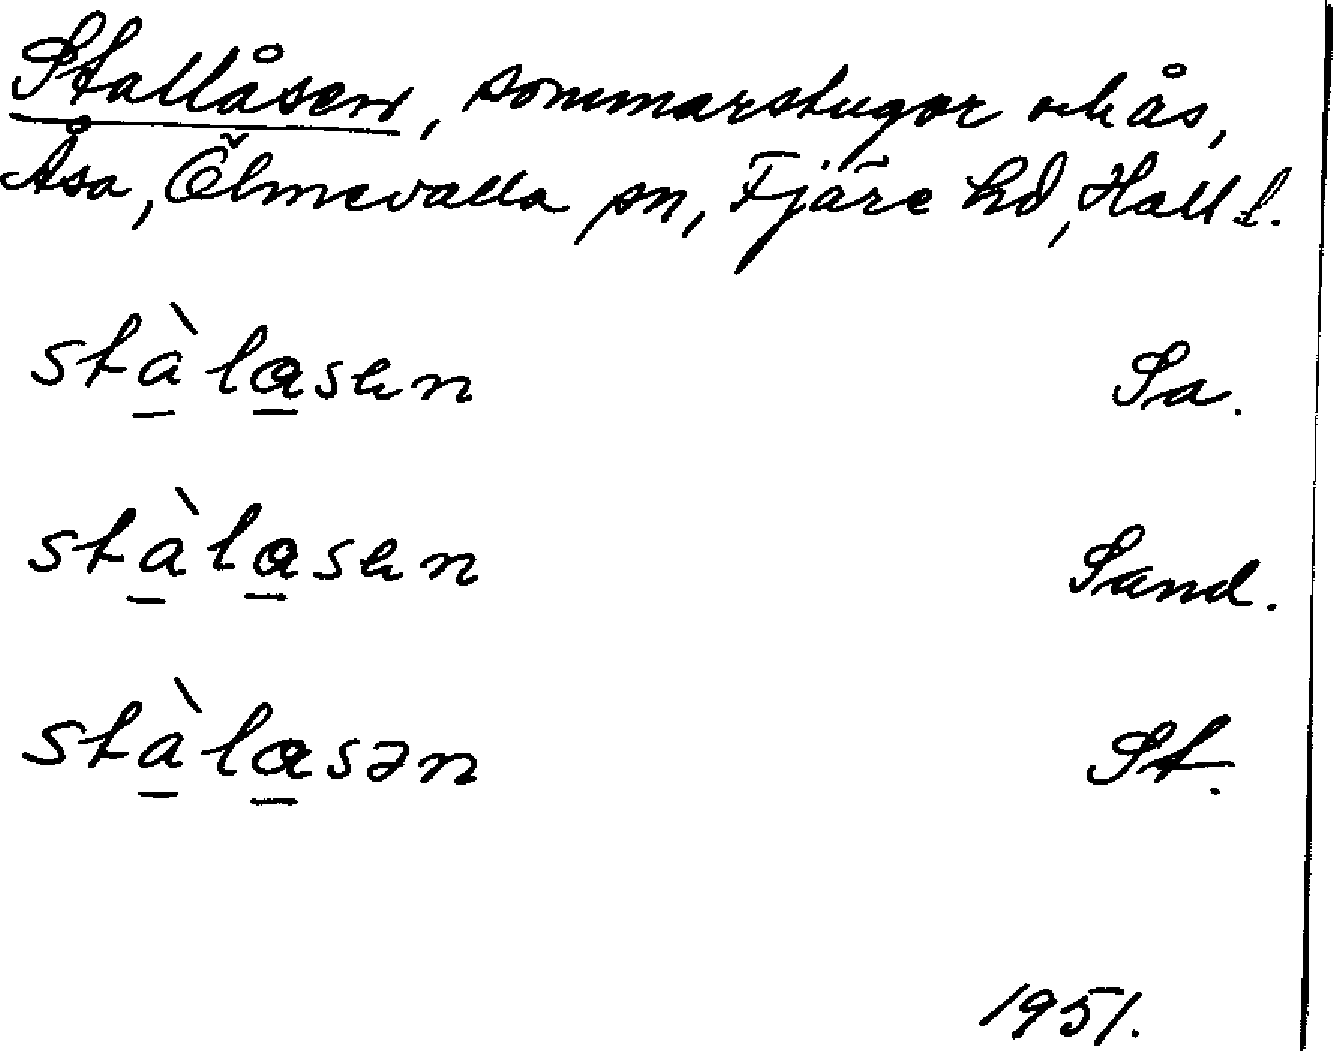 Stallåsen, sommarstugor och ås,
Åsa, Ölmevalla sn, Fjäre hd, Hall l.
stàlasen Sa.
stàlasen Sand.
stàlasən St.
1951.